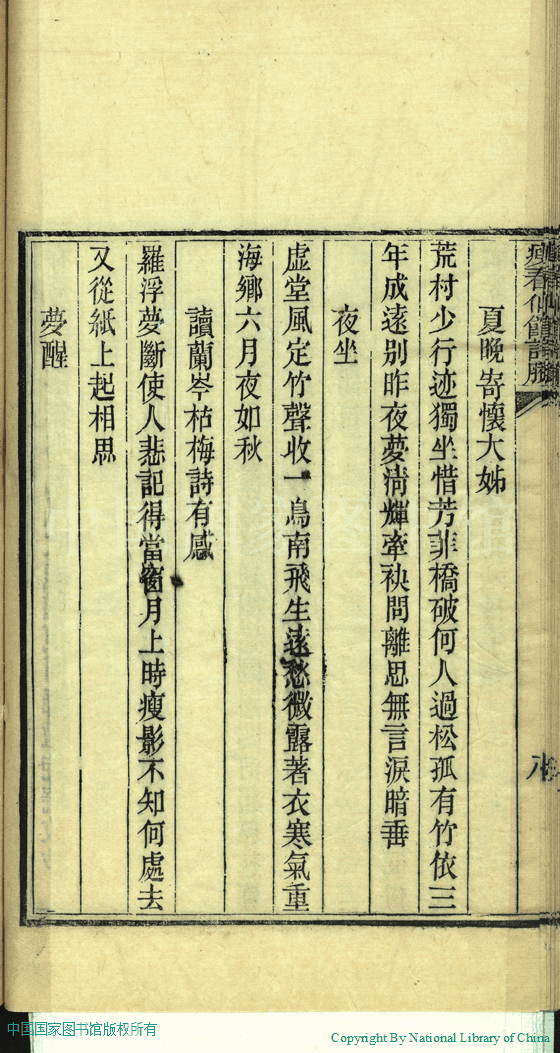 夏晚寄懷大姊
荒村少行迹獨坐惜芳菲橋破何人過松孤有竹依三
年成遠別昨夜夢淸輝牽袂問離思無言淚暗垂
夜坐
虛堂風定竹聲收一鳥南飛生遠愁微露著衣寒氣重
海鄉六月夜如秋
讀蘭岑枯梅詩有感
羅浮夢斷使人悲記得當窗月上時瘦影不知何處去
又從紙上起相思
夢醒
八
中国国家图书馆版权所有
Copyright By National Library of China